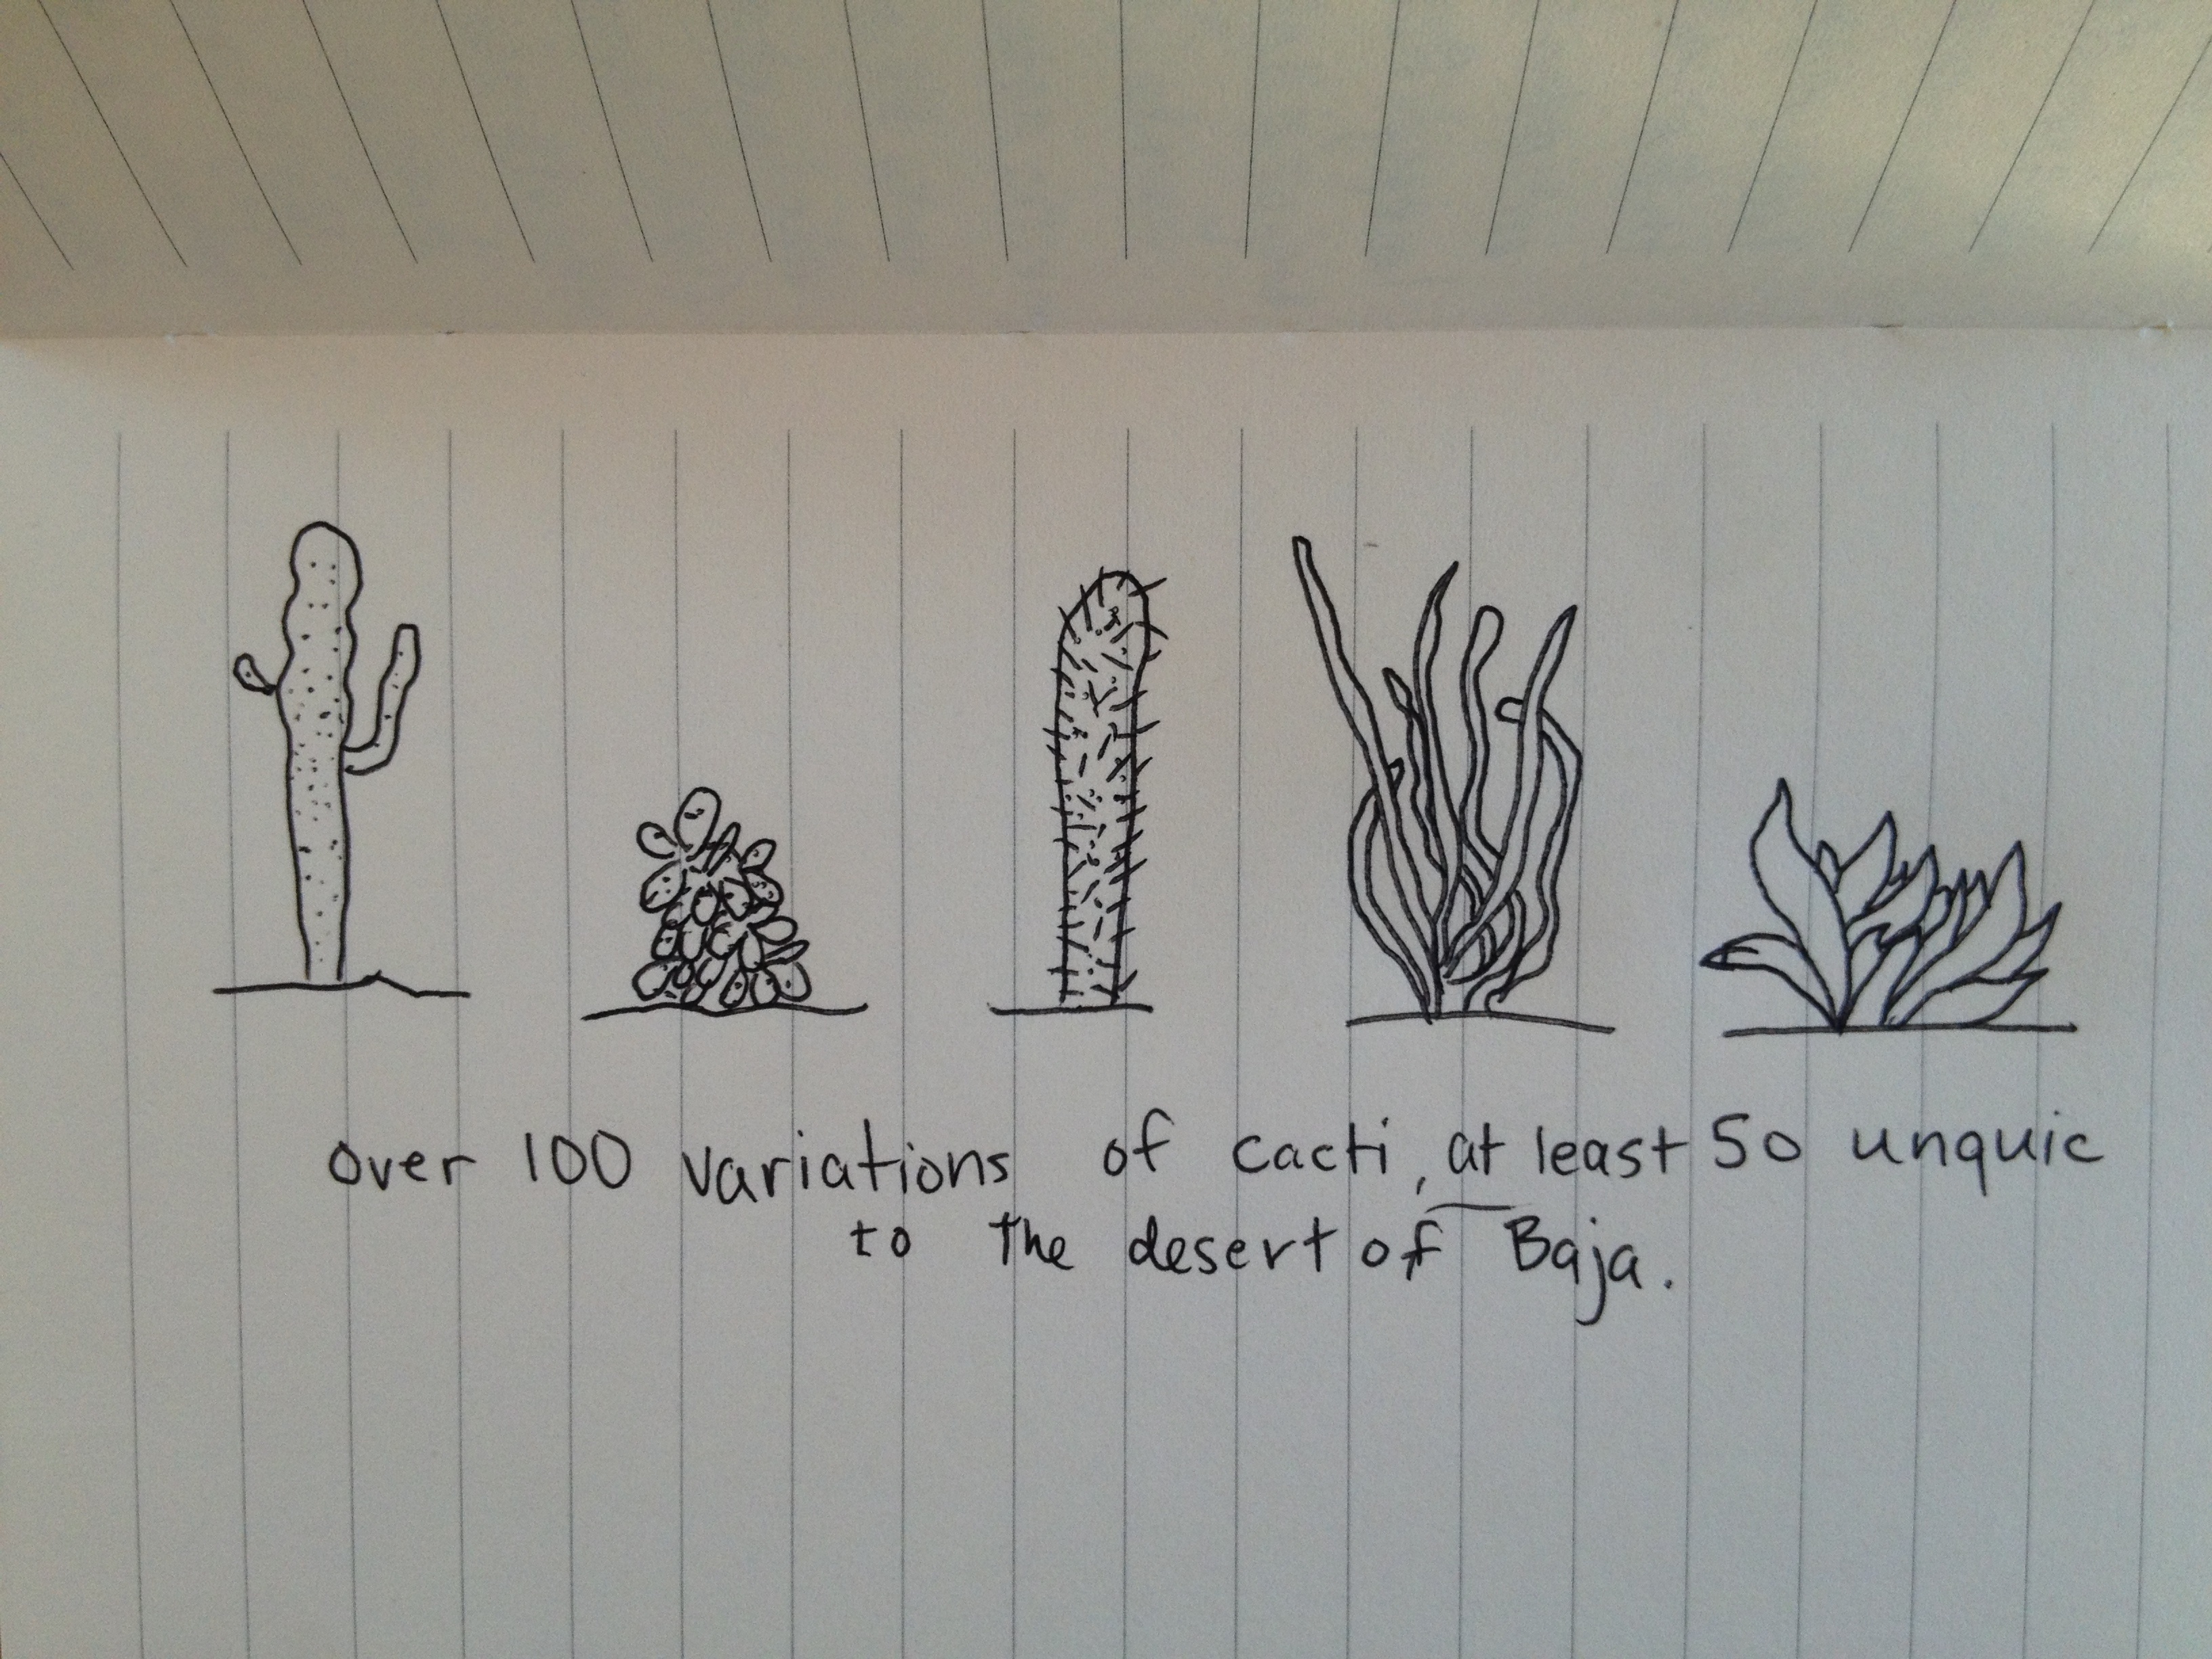 over 100 variations of cacti, at least 50 unquie
to the desert of Baja.